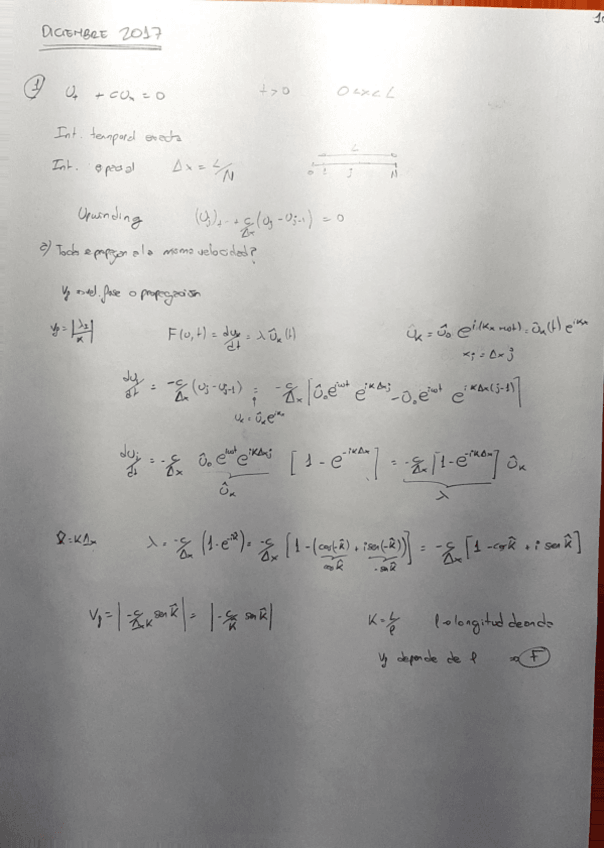 10
DICIEMBRE 2017
1 U_t + cU_x = 0 t>0 0<x<L
Int. temporal exacta
Int. espacial Δx = L/N L 0 1 j N
Upwinding (U_j)_t + c/Δx (U_j - U_{j-1}) = 0
a) Todo se propaga a la misma velocidad?
V_f = vel. fase o propagación
V_f = |λ_I/K| F(u,t) = du_k/dt = λ û_k(t) û_k = û_0 e^{i(kx + ωt)} = û_k(t) e^{ikx}
x_j = Δx j
du_j/dt = -c/Δx (u_j - u_{j-1}) = -c/Δx [û_0 e^{iωt} e^{ikΔxj} - û_0 e^{iωt} e^{ikΔx(j-1)}]
u_k = û_k e^{ikx}
du_j/dt = -c/Δx û_0 e^{iωt} e^{ikΔxj} [1 - e^{-ikΔx}] = -c/Δx [1 - e^{-ikΔx}] û_k
û_k λ
k̂ = KΔx λ = -c/Δx (1 - e^{-ik̂}) = -c/Δx [1 - (cos(-k̂) + i sen(-k̂))] = -c/Δx [1 - cos k̂ + i sen k̂]
cos k̂ -sen k̂
V_f = |-c/ΔxK sen k̂| = |-c/k̂ sen k̂| K = L/l l → longitud de onda
V_f depende de l ⇒ F